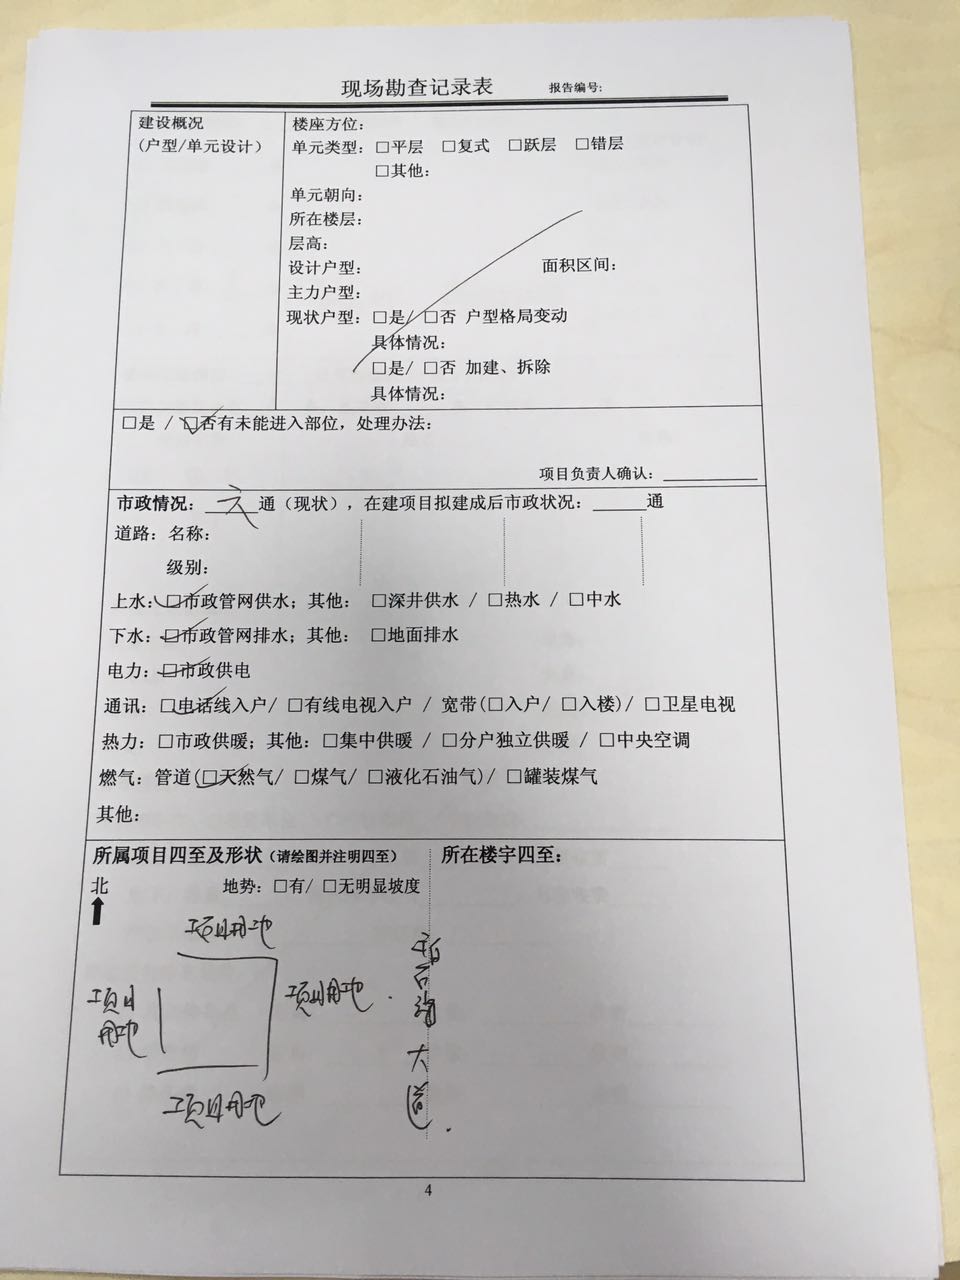 现场勘查记录表 报告编号:
建设概况
(户型/单元设计)
楼座方位:
单元类型: □平层 □复式 □跃层 □错层
□其他:
单元朝向:
所在楼层:
层高:
设计户型: 面积区间:
主力户型:
现状户型: □是/ □否 户型格局变动
具体情况:
□是/ □否 加建、拆除
具体情况:
□是 / □否有未能进入部位，处理办法:
项目负责人确认:
市政情况: 六 通（现状），在建项目拟建成后市政状况: 通
道路: 名称:
级别:
上水: □市政管网供水; 其他: □深井供水 / □热水 / □中水
下水: □市政管网排水; 其他: □地面排水
电力: □市政供电
通讯: □电话线入户/ □有线电视入户 / 宽带(□入户/ □入楼)/ □卫星电视
热力: □市政供暖; 其他: □集中供暖 / □分户独立供暖 / □中央空调
燃气: 管道(□天然气/ □煤气/ □液化石油气)/ □罐装煤气
其他:
所属项目四至及形状（请绘图并注明四至） 所在楼宇四至:
北 地势: □有/ □无明显坡度
项目用地
项目
用地
项目用地
项目用地
大
道
4